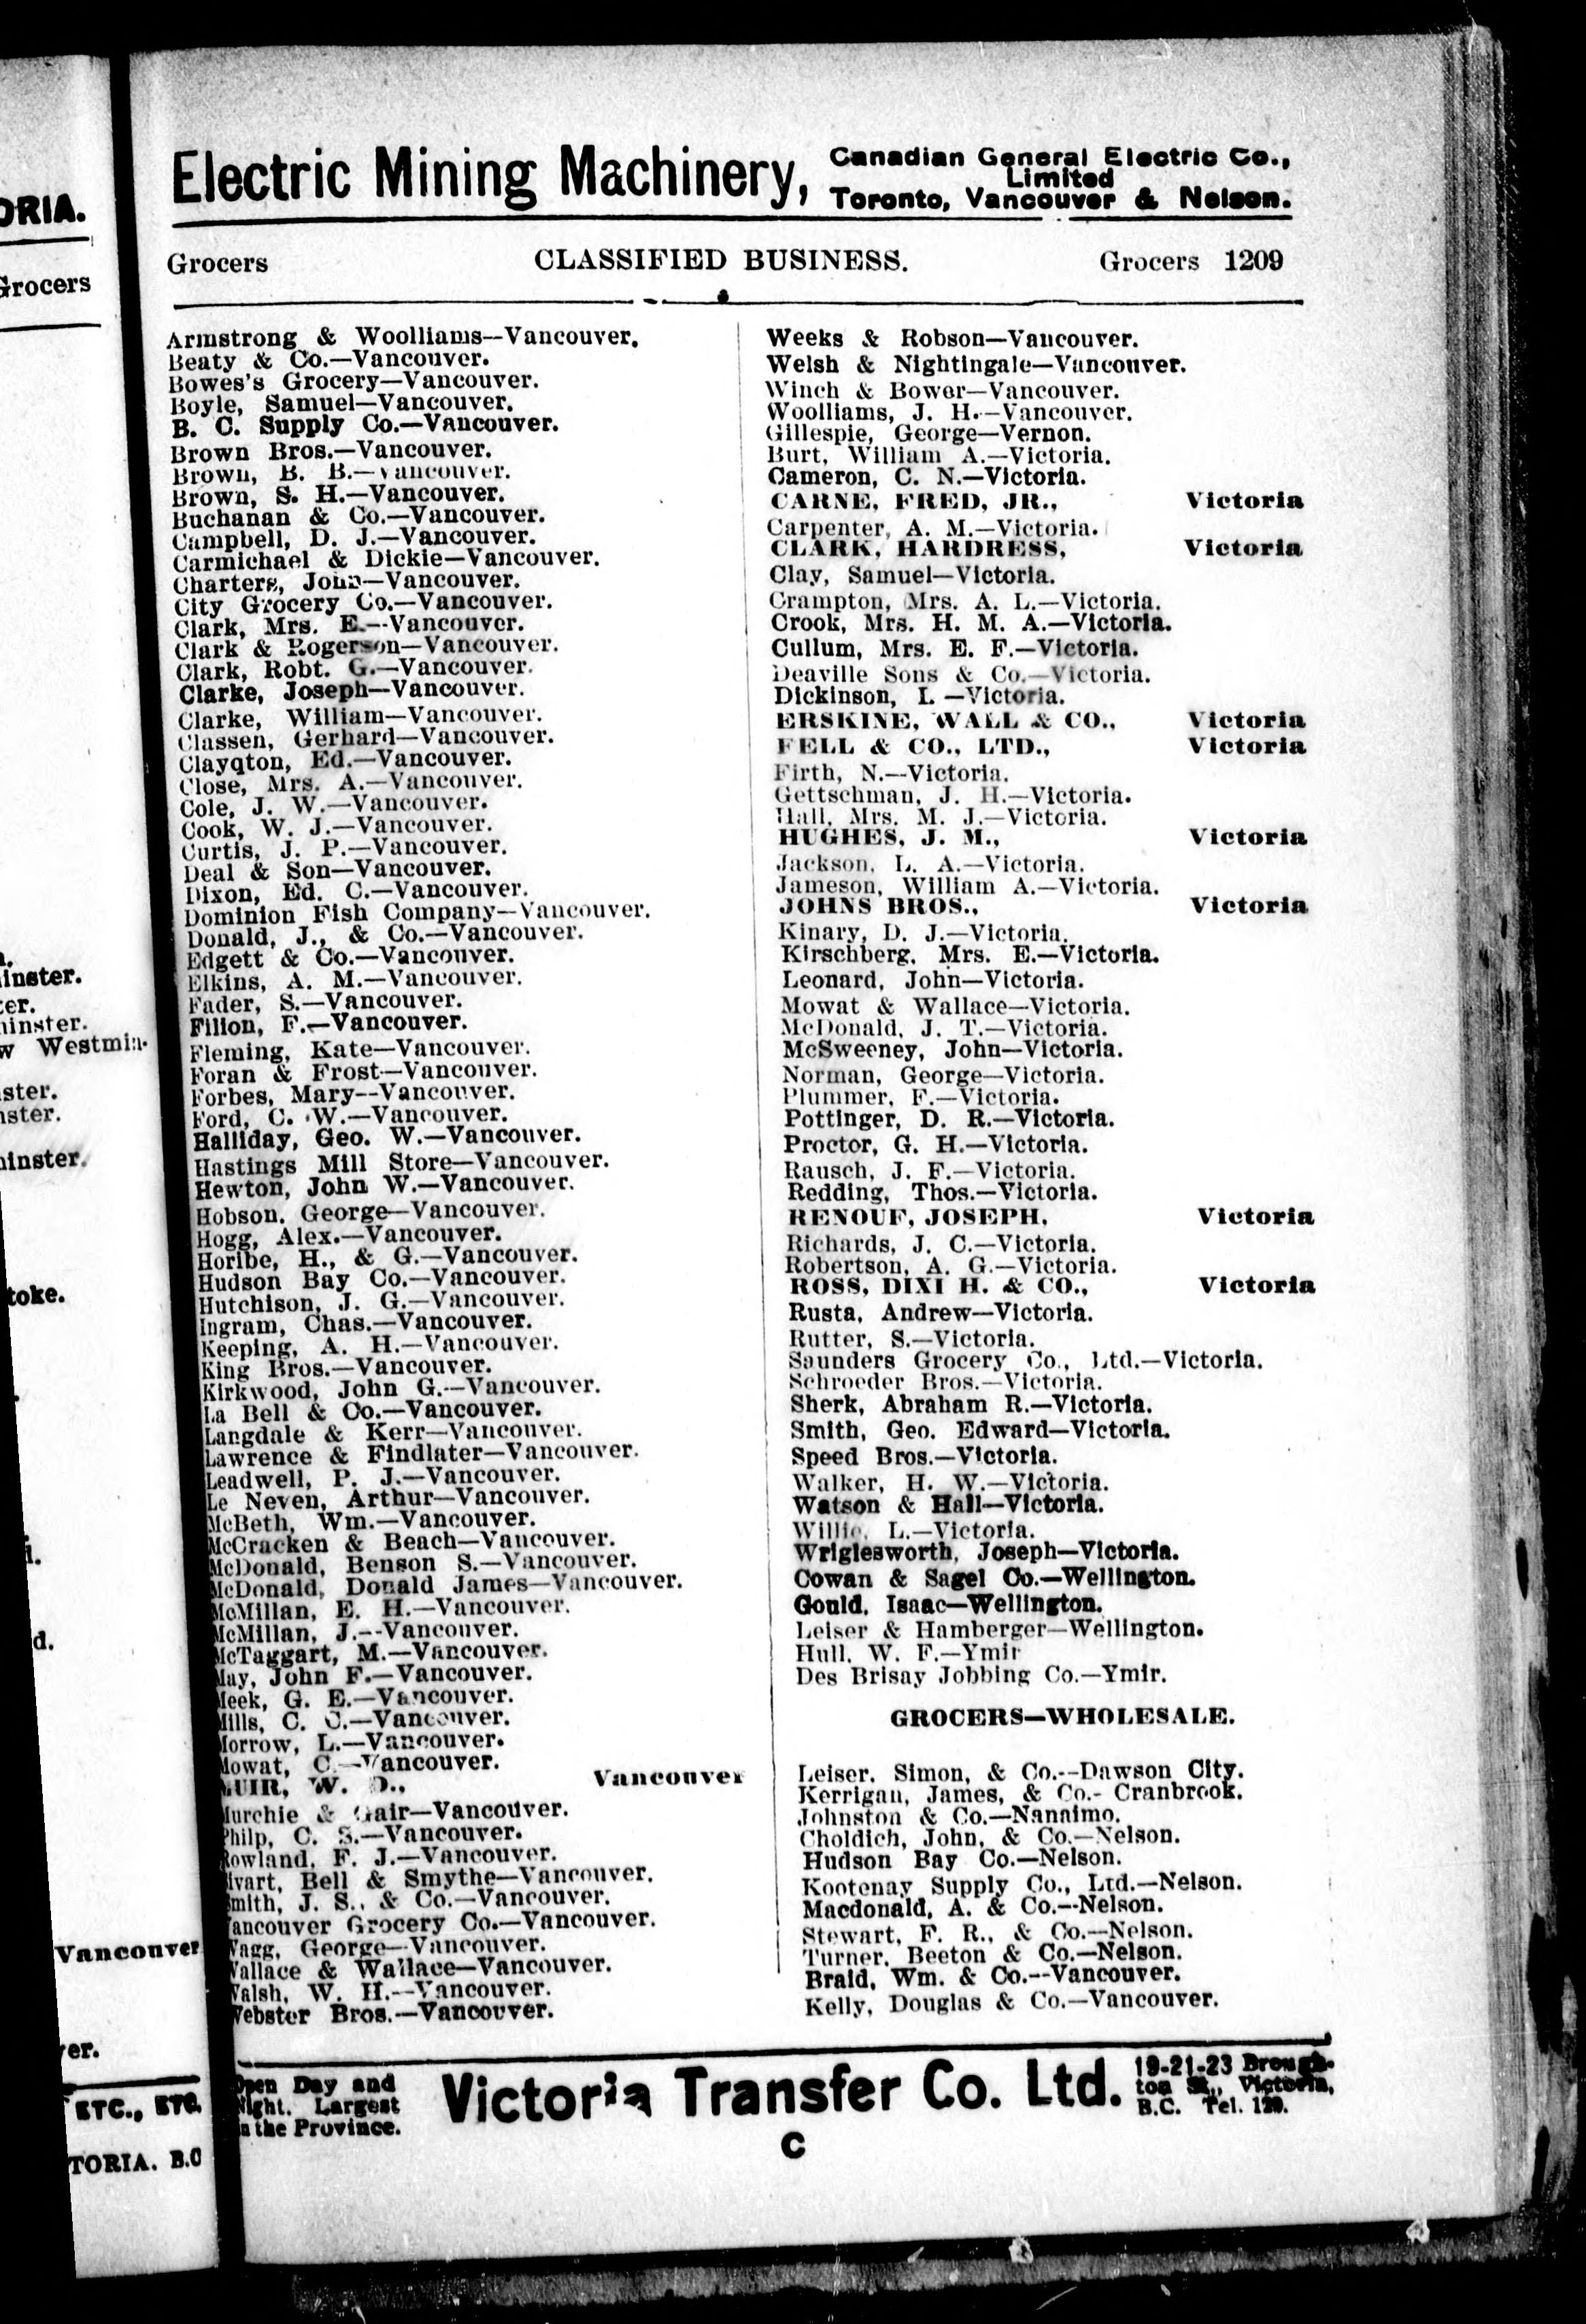 ORIA.
Grocers
inster.
ter.
inster.
w Westmin-
ster.
ster.
inster.
toke.
d.
Vancouver
er.
ETC., ETC.
TORIA. B.C
Electric Mining Machinery, Canadian General Electric Co.,
Limited
Toronto, Vancouver & Nelson.
Grocers CLASSIFIED BUSINESS. Grocers 1209
Armstrong & Woolliams—Vancouver.
Beaty & Co.—Vancouver.
Bowes's Grocery—Vancouver.
Boyle, Samuel—Vancouver.
B. C. Supply Co.—Vancouver.
Brown Bros.—Vancouver.
Brown, B. B.—Vancouver.
Brown, S. H.—Vancouver.
Buchanan & Co.—Vancouver.
Campbell, D. J.—Vancouver.
Carmichael & Dickie—Vancouver.
Charters, John—Vancouver.
City Grocery Co.—Vancouver.
Clark, Mrs. E.—Vancouver.
Clark & Rogerson—Vancouver.
Clark, Robt. G.—Vancouver.
Clarke, Joseph—Vancouver.
Clarke, William—Vancouver.
Classen, Gerhard—Vancouver.
Clayqton, Ed.—Vancouver.
Close, Mrs. A.—Vancouver.
Cole, J. W.—Vancouver.
Cook, W. J.—Vancouver.
Curtis, J. P.—Vancouver.
Deal & Son—Vancouver.
Dixon, Ed. C.—Vancouver.
Dominion Fish Company—Vancouver.
Donald, J., & Co.—Vancouver.
Edgett & Co.—Vancouver.
Elkins, A. M.—Vancouver.
Fader, S.—Vancouver.
Filion, F.—Vancouver.
Fleming, Kate—Vancouver.
Foran & Frost—Vancouver.
Forbes, Mary—Vancouver.
Ford, C. W.—Vancouver.
Halliday, Geo. W.—Vancouver.
Hastings Mill Store—Vancouver.
Hewton, John W.—Vancouver.
Hobson. George—Vancouver.
Hogg, Alex.—Vancouver.
Horibe, H., & G.—Vancouver.
Hudson Bay Co.—Vancouver.
Hutchison, J. G.—Vancouver.
Ingram, Chas.—Vancouver.
Keeping, A. H.—Vancouver.
King Bros.—Vancouver.
Kirkwood, John G.—Vancouver.
La Bell & Co.—Vancouver.
Langdale & Kerr—Vancouver.
Lawrence & Findlater—Vancouver.
Leadwell, P. J.—Vancouver.
Le Neven, Arthur—Vancouver.
McBeth, Wm.—Vancouver.
McCracken & Beach—Vancouver.
McDonald, Benson S.—Vancouver.
McDonald, Donald James—Vancouver.
McMillan, E. H.—Vancouver.
McMillan, J.—Vancouver.
McTaggart, M.—Vancouver.
May, John F.—Vancouver.
Meek, G. E.—Vancouver.
Mills, C. C.—Vancouver.
Morrow, L.—Vancouver.
Mowat, C.—Vancouver.
MUIR, W. D., Vancouver
Murchie & Gair—Vancouver.
Philp, C. S.—Vancouver.
Rowland, F. J.—Vancouver.
ivart, Bell & Smythe—Vancouver.
Smith, J. S., & Co.—Vancouver.
Vancouver Grocery Co.—Vancouver.
Wagg, George—Vancouver.
Wallace & Wallace—Vancouver.
Walsh, W. H.—Vancouver.
Webster Bros.—Vancouver.
Weeks & Robson—Vancouver.
Welsh & Nightingale—Vancouver.
Winch & Bower—Vancouver.
Woolliams, J. H.—Vancouver.
Gillespie, George—Vernon.
Burt, William A.—Victoria.
Cameron, C. N.—Victoria.
CARNE, FRED, JR., Victoria
Carpenter, A. M.—Victoria.
CLARK, HARDRESS, Victoria
Clay, Samuel—Victoria.
Crampton, Mrs. A. L.—Victoria.
Crook, Mrs. H. M. A.—Victoria.
Cullum, Mrs. E. F.—Victoria.
Deaville Sons & Co.—Victoria.
Dickinson, I. —Victoria.
ERSKINE, WALL & CO., Victoria
FELL & CO., LTD., Victoria
Firth, N.—Victoria.
Gettschman, J. H.—Victoria.
Hall, Mrs. M. J.—Victoria.
HUGHES, J. M., Victoria
Jackson, L. A.—Victoria.
Jameson, William A.—Victoria.
JOHNS BROS., Victoria
Kinary, D. J.—Victoria.
Kirschberg, Mrs. E.—Victoria.
Leonard, John—Victoria.
Mowat & Wallace—Victoria.
McDonald, J. T.—Victoria.
McSweeney, John—Victoria.
Norman, George—Victoria.
Plummer, F.—Victoria.
Pottinger, D. R.—Victoria.
Proctor, G. H.—Victoria.
Rausch, J. F.—Victoria.
Redding, Thos.—Victoria.
RENOUF, JOSEPH, Victoria
Richards, J. C.—Victoria.
Robertson, A. G.—Victoria.
ROSS, DIXI H. & CO., Victoria
Rusta, Andrew—Victoria.
Rutter, S.—Victoria.
Saunders Grocery Co., Ltd.—Victoria.
Schroeder Bros.—Victoria.
Sherk, Abraham R.—Victoria.
Smith, Geo. Edward—Victoria.
Speed Bros.—Victoria.
Walker, H. W.—Victoria.
Watson & Hall—Victoria.
Willie, L.—Victoria.
Wriglesworth, Joseph—Victoria.
Cowan & Sagel Co.—Wellington.
Gould, Isaac—Wellington.
Leiser & Hamberger—Wellington.
Hull, W. F.—Ymir
Des Brisay Jobbing Co.—Ymir.
GROCERS—WHOLESALE.
Leiser, Simon, & Co.--Dawson City.
Kerrigan, James, & Co.- Cranbrook.
Johnston & Co.—Nanaimo.
Choldich, John, & Co.—Nelson.
Hudson Bay Co.—Nelson.
Kootenay Supply Co., Ltd.—Nelson.
Macdonald, A. & Co.—Nelson.
Stewart, F. R., & Co.—Nelson.
Turner, Beeton & Co.—Nelson.
Braid, Wm. & Co.--Vancouver.
Kelly, Douglas & Co.—Vancouver.
Open Day and
Night. Largest
in the Province.
Victoria Transfer Co. Ltd.
19-21-23 Brough-
ton St., Victoria,
B.C. Tel. 129.
C